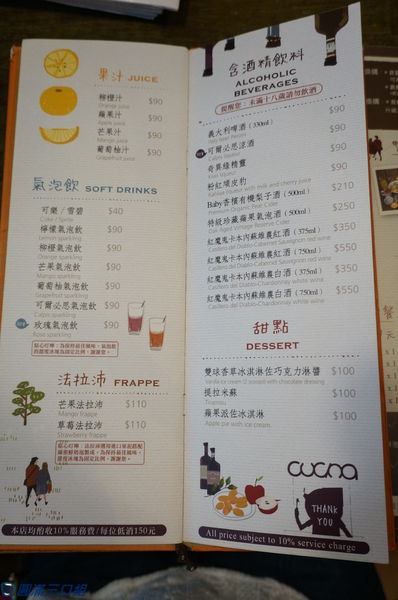 果汁 JUICE
柳橙汁 $90
Orange juice
蘋果汁 $90
Apple juice
芒果汁 $90
Mango juice
葡萄柚汁 $90
Grapefruit juice
氣泡飲 SOFT DRINKS
可樂/雪碧 $40
Coke / Sprite
檸檬氣泡飲 $90
Lemon sparkling
柳橙氣泡飲 $90
Orange sparkling
芒果氣泡飲 $90
Mango sparkling
葡萄柚氣泡飲 $90
Grapefruit sparkling
可爾必思氣泡飲 $90
Calpis sparkling
玫瑰氣泡飲 $90
Rose sparkling
貼心叮嚀:為保持最佳風味,氣泡飲
的甜度冰塊為固定比例,謝謝您。
法拉沛 FRAPPE
芒果法拉沛 $110
Mango frappe
草莓法拉沛 $110
Strawberry frappe
本店均酌收10%服務費/每位低消150元
含酒精飲料
ALCOHOLIC
BEVERAGES
提醒您:未滿十八歲請勿飲酒
義大利啤酒(330ml) $90
可爾必思涼酒 $90
Calpis liqueur
奇異綠精靈 $90
Kiwi liqueur
粉紅頑皮豹 $90
Kahlua liqueur with milk and cherry juice
Baby香檳有機梨子酒(500ml) $210
Premium Organic Pear Cider
特級珍藏蘋果氣泡酒(500ml) $250
Oak Aged Vintage Reserve Cider
紅魔鬼卡本內蘇維濃紅酒(375ml) $350
Casillero del Diablo-Cabernet Sauvignon red wine
紅魔鬼卡本內蘇維濃紅酒(750ml) $550
Casillero del Diablo-Cabernet Sauvignon red wine
紅魔鬼卡本內蘇維濃白酒(375ml) $350
Casillero del Diablo-Chardonnay white wine
紅魔鬼卡本內蘇維濃白酒(750ml) $550
Casillero del Diablo-Chardonnay white wine
甜點
DESSERT
雙球香草冰淇淋佐巧克力淋醬 $100
Vanilla ice cream (2 scoops) with chocolate dressing
提拉米蘇 $100
Tiramisu
蘋果派佐冰淇淋 $100
Apple pie with ice cream
cucna
THANK
YOU
All price subject to 10% service charge